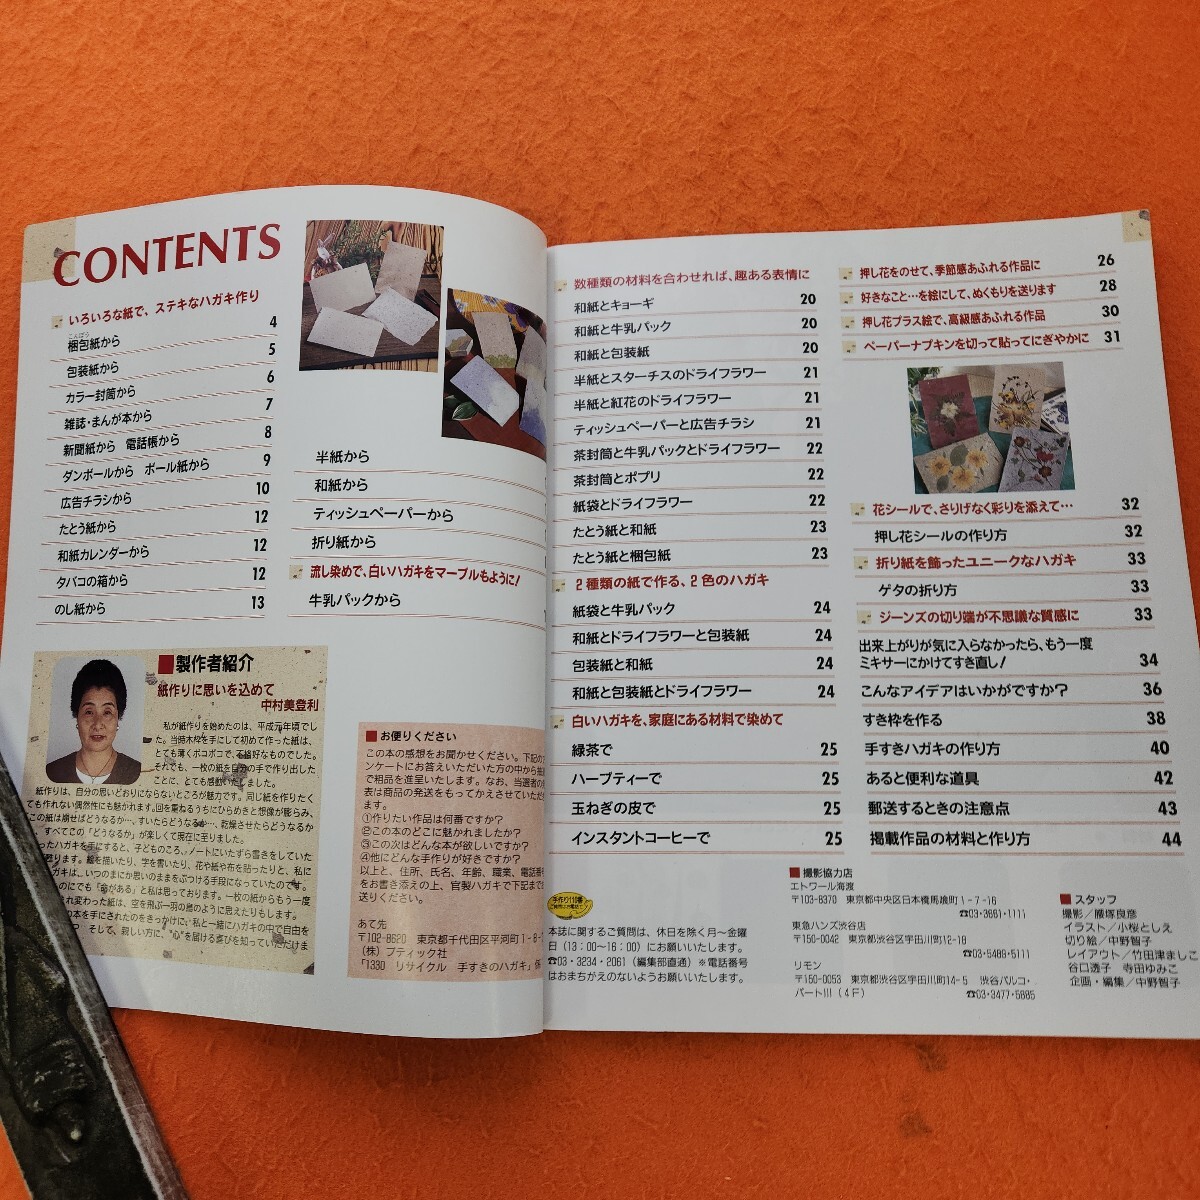 CONTENTS
いろいろな紙で、ステキなハガキ作り
梱包紙から 4
包装紙から 5
カラー封筒から 6
雑誌・まんが本から 7
新聞紙から 電話帳から 8
ダンボールから ボール紙から 9
広告チラシから 10
たとう紙から 12
和紙カレンダーから 12
タバコの箱から 12
のし紙から 13
半紙から
和紙から
ティッシュペーパーから
折り紙から
流し染めで、白いハガキをマーブルもように!
牛乳パックから
■製作者紹介
紙作りに思いを込めて
中村美登利
私が紙作りを始めたのは、平成元年頃でし
た。当時木枠を手にして初めて作った紙は、
とても薄くボコボコで、不格好なものでした。
それでも、一枚の紙を自分の手で作り出した
ことに、とても感動いたしました。
紙作りは、自分の思いどおりにならないところが魅力です。同じ紙を作りたく
ても作れない偶然性にも魅かれます。回を重ねるうちにひらめきと想像が膨らみ、
この紙は崩せばどうなるか…、すいたらどうなるか…、乾燥させたらどうなるか
、すべてこの「どうなるか」が楽しくて現在に至りました。
ったハガキを手にすると、子どものころ、ノートにいたずら書きをしていた
甦ります。絵を描いたり、字を書いたり、花や紙や布を貼ったりと、私に
ガキは、いつのまにか思いのままをぶつける手段になっていたのです。
のにでも「命がある」と私は思っております。一枚の紙からもう一度
れ変わった紙は、空を飛ぶ一羽の鳥のように思えたりもします。
の本を手にされたのをきっかけに、私と一緒にハガキの中で自由を
そして、親しい方に、“心”を届ける喜びを知っていただけま
■お便りください
この本の感想をお聞かせください。下記のア
ンケートにお答えいただいた方の中から抽
で粗品を進呈いたします。なお、当選者の
表は商品の発送をもってかえさせていただ
①作りたい作品は何番ですか?
②この本のどこに魅かれましたか?
③この次はどんな本が欲しいですか?
④他にどんな手作りが好きですか?
以上と、住所、氏名、年齢、職業、電話番号
をお書き添えの上、官製ハガキで下記まで
送りください。
あて先
〒102-8620 東京都千代田区平河町1-8-
(株)ブティック社
「1330 リサイクル 手すきのハガキ」係
数種類の材料を合わせれば、趣ある表情に
和紙とキョーギ 20
和紙と牛乳パック 20
和紙と包装紙 20
半紙とスターチスのドライフラワー 21
半紙と紅花のドライフラワー 21
ティッシュペーパーと広告チラシ 21
茶封筒と牛乳パックとドライフラワー 22
茶封筒とポプリ 22
紙袋とドライフラワー 22
たとう紙と和紙 23
たとう紙と梱包紙 23
2種類の紙で作る、2色のハガキ
紙袋と牛乳パック 24
和紙とドライフラワーと包装紙 24
包装紙と和紙 24
和紙と包装紙とドライフラワー 24
白いハガキを、家庭にある材料で染めて
緑茶で 25
ハーブティーで 25
玉ねぎの皮で 25
インスタントコーヒーで 25
手作り110番
本誌に関するご質問は、休日を除く月〜金曜
日(13:00〜16:00)にお願いいたします。
☎03・3234・2061(編集部直通)※電話番号
はおまちがえのないようお願いいたします。
押し花をのせて、季節感あふれる作品に 26
好きなこと…を絵にして、ぬくもりを送ります 28
押し花プラス絵で、高級感あふれる作品 30
ペーパーナプキンを切って貼ってにぎやかに 31
花シールで、さりげなく彩りを添えて… 32
押し花シールの作り方 32
折り紙を飾ったユニークなハガキ 33
ゲタの折り方 33
ジーンズの切り端が不思議な質感に 33
出来上がりが気に入らなかったら、もう一度
ミキサーにかけてすき直し! 34
こんなアイデアはいかがですか? 36
すき枠を作る 38
手すきハガキの作り方 40
あると便利な道具 42
郵送するときの注意点 43
掲載作品の材料と作り方 44
■撮影協力店
エトワール海渡
〒103-8370 東京都中央区日本橋馬喰町1-7-16
☎03・3661・1111
東急ハンズ渋谷店
〒150-0042 東京都渋谷区宇田川町12-18
☎03・5489・5111
リモン
〒150-0053 東京都渋谷区宇田川町14-5 渋谷パルコ・
パートIII(4F) ☎03・3477・5885
■スタッフ
撮影/腰塚良彦
イラスト/小桜としえ
切り絵/中野智子
レイアウト/竹田津ましこ
谷口透子 寺田ゆみこ
企画・編集/中野智子